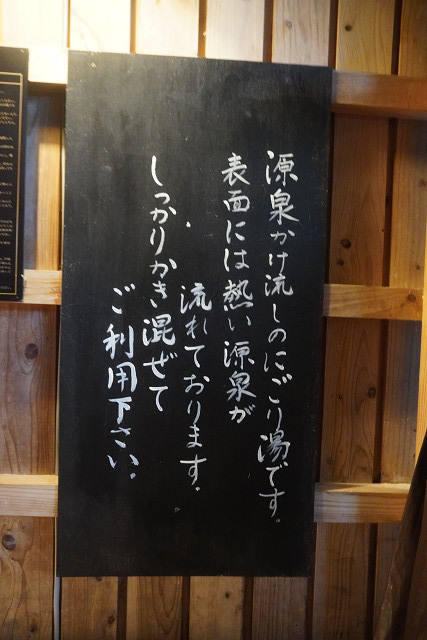 源泉かけ流しのにごり湯です。
表面には熱い源泉が
流れております。
しっかりかき混ぜて
ご利用下さい。